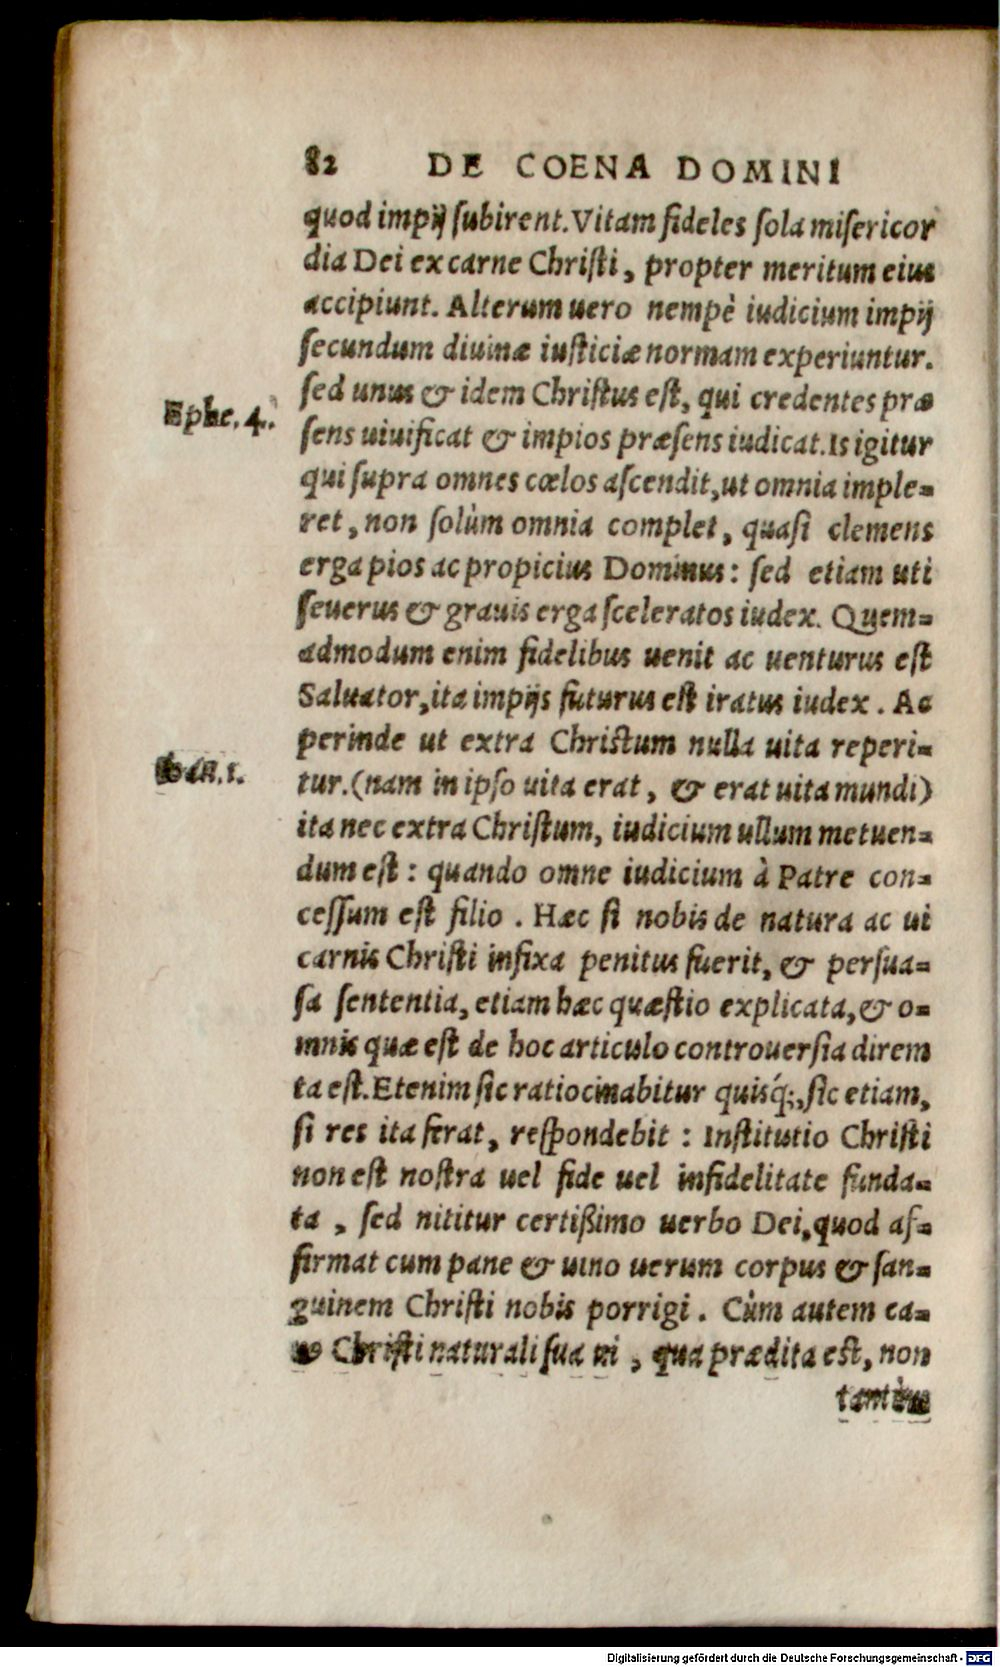 82 DE COENA DOMINI
quod impij ſubirent. Vitam fideles ſola miſericor
dia Dei ex carne Chriſti, propter meritum eius
accipiunt. Alterum uero nempè iudicium impij
ſecundum diuinæ iuſticiæ normam experiuntur.
ſed unus & idem Chriſtus eſt, qui credentes præ
Ephe. 4.
ſens uiuificat & impios præſens iudicat. Is igitur
qui ſupra omnes cœlos aſcendit, ut omnia imple=
ret, non ſolùm omnia complet, quaſi clemens
erga pios ac propicius Dominus: ſed etiam uti
ſeuerus & grauis erga ſceleratos iudex. Quem=
admodum enim fidelibus uenit ac uenturus eſt
Saluator, ita impijs futurus eſt iratus iudex. Ac
perinde ut extra Chriſtum nulla uita reperi=
Ioan. 1.
tur. (nam in ipſo uita erat, & erat uita mundi)
ita nec extra Chriſtum, iudicium ullum metuen=
dum eſt: quando omne iudicium à Patre con=
ceſſum eſt filio. Hæc ſi nobis de natura ac ui
carnis Chriſti infixa penitus fuerit, & perſua=
ſa ſententia, etiam hæc quæſtio explicata, & o=
mnis quæ eſt de hoc articulo controuerſia direm
ta eſt. Etenim ſic ratiocinabitur quisq́;, ſic etiam,
ſi res ita ferat, reſpondebit: Inſtitutio Chriſti
non eſt noſtra uel fide uel infidelitate funda=
ta, ſed nititur certißimo uerbo Dei, quod aſ=
firmat cum pane & uino uerum corpus & ſan=
guinem Chriſti nobis porrigi. Cùm autem ca=
ro Chriſti naturali ſua ui, qua prædita eſt, non
tantùm
Digitalisierung gefördert durch die Deutsche Forschungsgemeinschaft - DFG